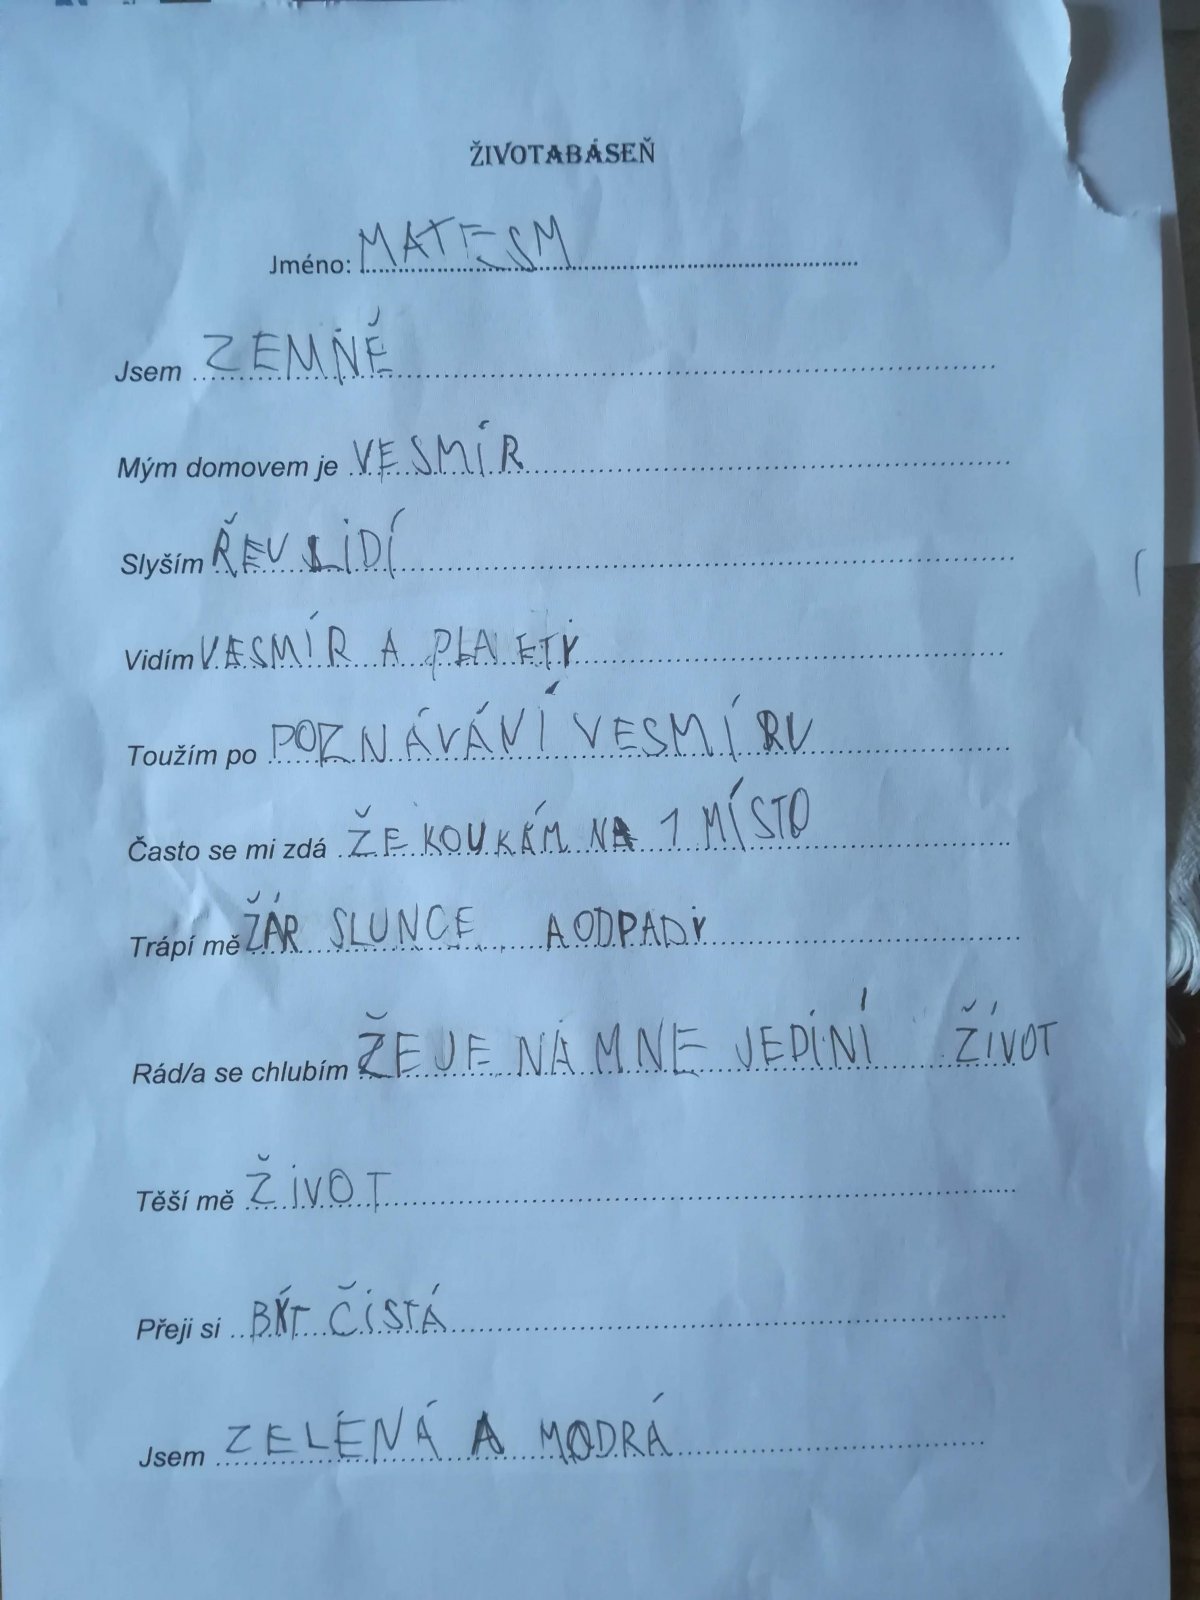 ŽIVOTABÁSEŇ
Jméno: MATESM
Jsem ZEMNĚ
Mým domovem je VESMÍR
Slyším ŘEV LIDÍ
Vidím VESMÍR A PLANETY
Toužím po POZNÁVÁNÍ VESMÍRU
Často se mi zdá ŽE KOUKÁM NA 1 MÍSTO
Trápí mě ŽÁR SLUNCE A ODPADY
Rád/a se chlubím ŽE JE NA MNE JEDINÍ ŽÍVOT
Těší mě ŽIVOT
Přeji si BÝT ČISTÁ
Jsem ZELENÁ A MODRÁ